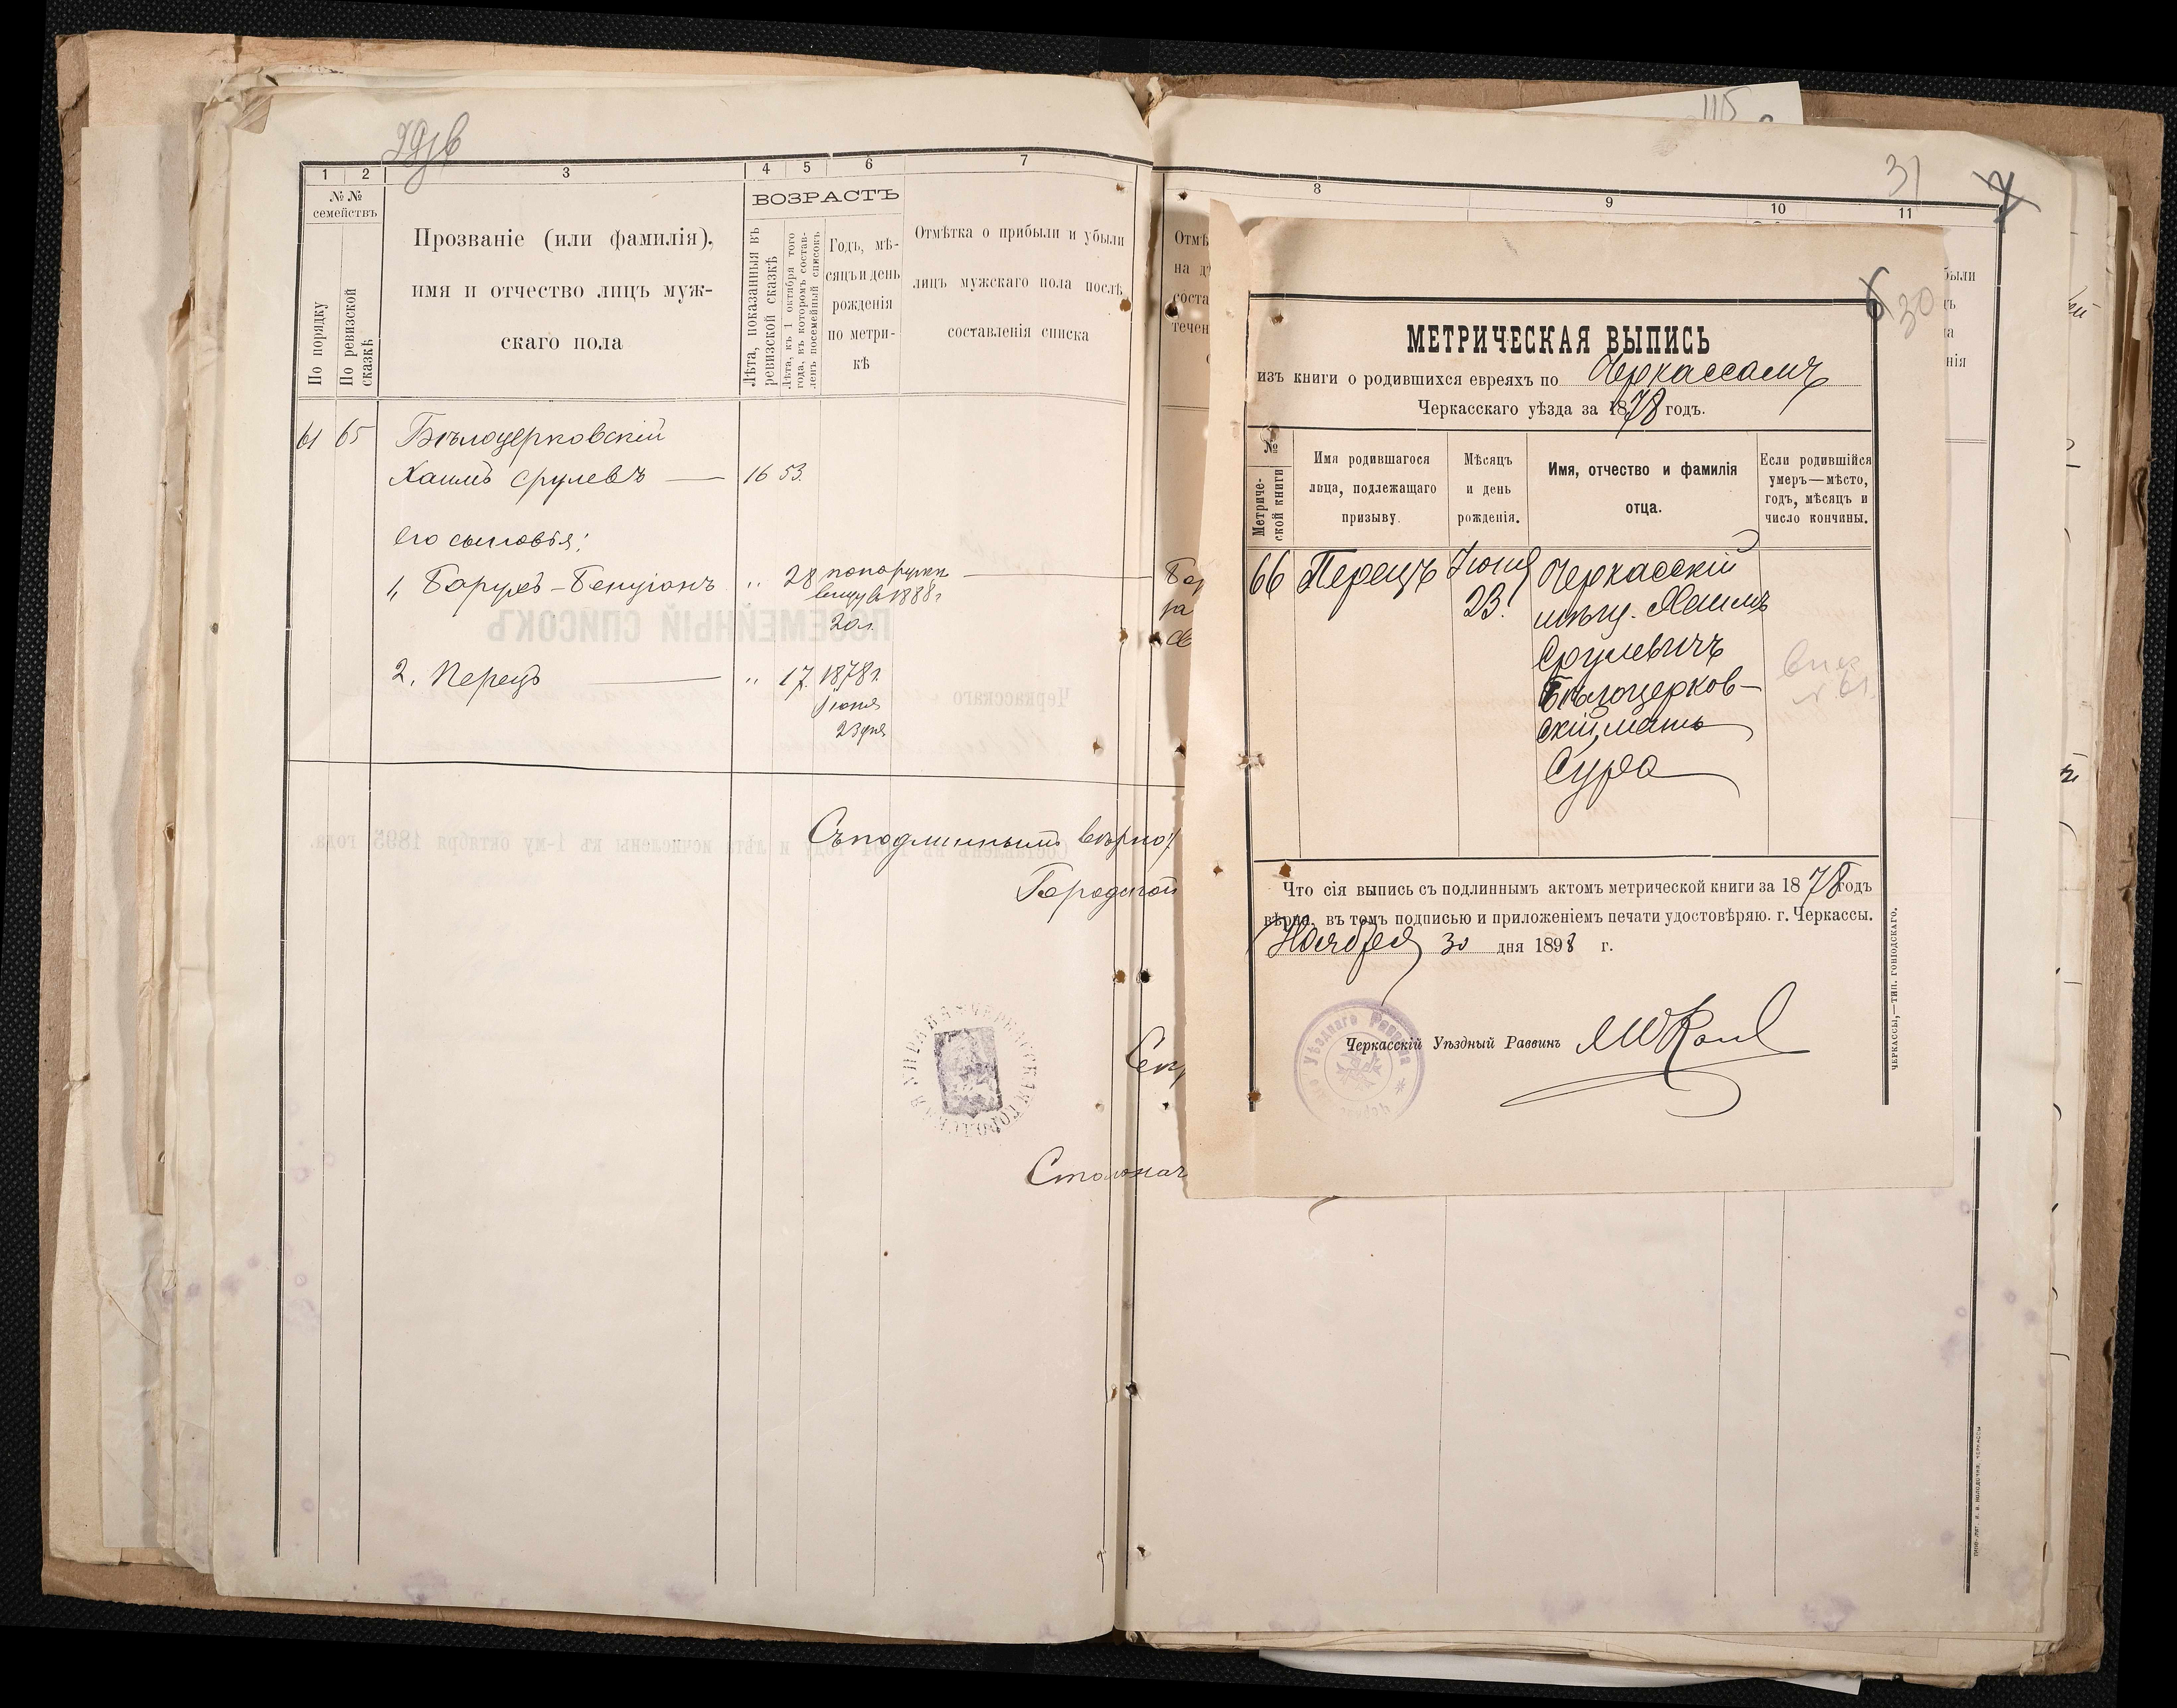 115
31
30
1 2 3 4 5 6 7
№ № семействъ
По порядку
По ревизской сказкѣ
Прозваніе (или фамилія),
имя и отчество лицъ муж-
скаго пола
ВОЗРАСТЪ
Лѣта, показанныя въ ревизской сказкѣ
Лѣта, къ 1 октября того года, въ которомъ состав-ленъ посемейный списокъ
Годъ, мѣ-
сяцъ и день
рожденія
по метри-
кѣ
Отмѣтка о прибыли и убыли
лицъ мужскаго пола послѣ
составленія списка
61 65 Бѣлоцерковскій
Хаимъ Срулевъ — 16 53.
его сыновья:
1, Барухъ-Бенціонъ " 28
1888г
20л.
2. Перецъ — " 17. 1878г.
іюня
23 дня
ПОСЕМЕЙНЫЙ СПИСОКЪ
Черкасскаго
Составленъ въ году и лѣта исчислены къ 1-му октября 1895 года.
Съ подлиннымъ вѣрно:
Городской
Сек
Столонач
8 9 10 11
Отмѣ
на д
соста
течен
были
нія
Бар
МЕТРИЧЕСКАЯ ВЫПИСЬ
изъ книги о родившихся евреяхъ по Черкассамъ
Черкасскаго уѣзда за 1878 годъ.
№
Метриче-
ской книги
Имя родившагося
лица, подлежащаго
призыву.
Мѣсяцъ
и день
рожденія.
Имя, отчество и фамилія
отца.
Если родившійся
умеръ—мѣсто,
годъ, мѣсяцъ и
число кончины.
66 Перецъ Іюня
23.
Черкасскій
мѣщ. Хаимъ
Срулевичъ
Бѣлоцерков-
скій, мать
Сура
Что сія выпись съ подлиннымъ актомъ метрической книги за 1878 годъ
вѣрно, въ томъ подписью и приложеніемъ печати удостовѣряю. г. Черкассы.
Ноября 30 дня 1898 г.
Черкасскій Уѣздный Раввинъ
Уѣзднаго Раввина
ЧЕРКАССЫ,—ТИП. ГОНІОДСКАГО.